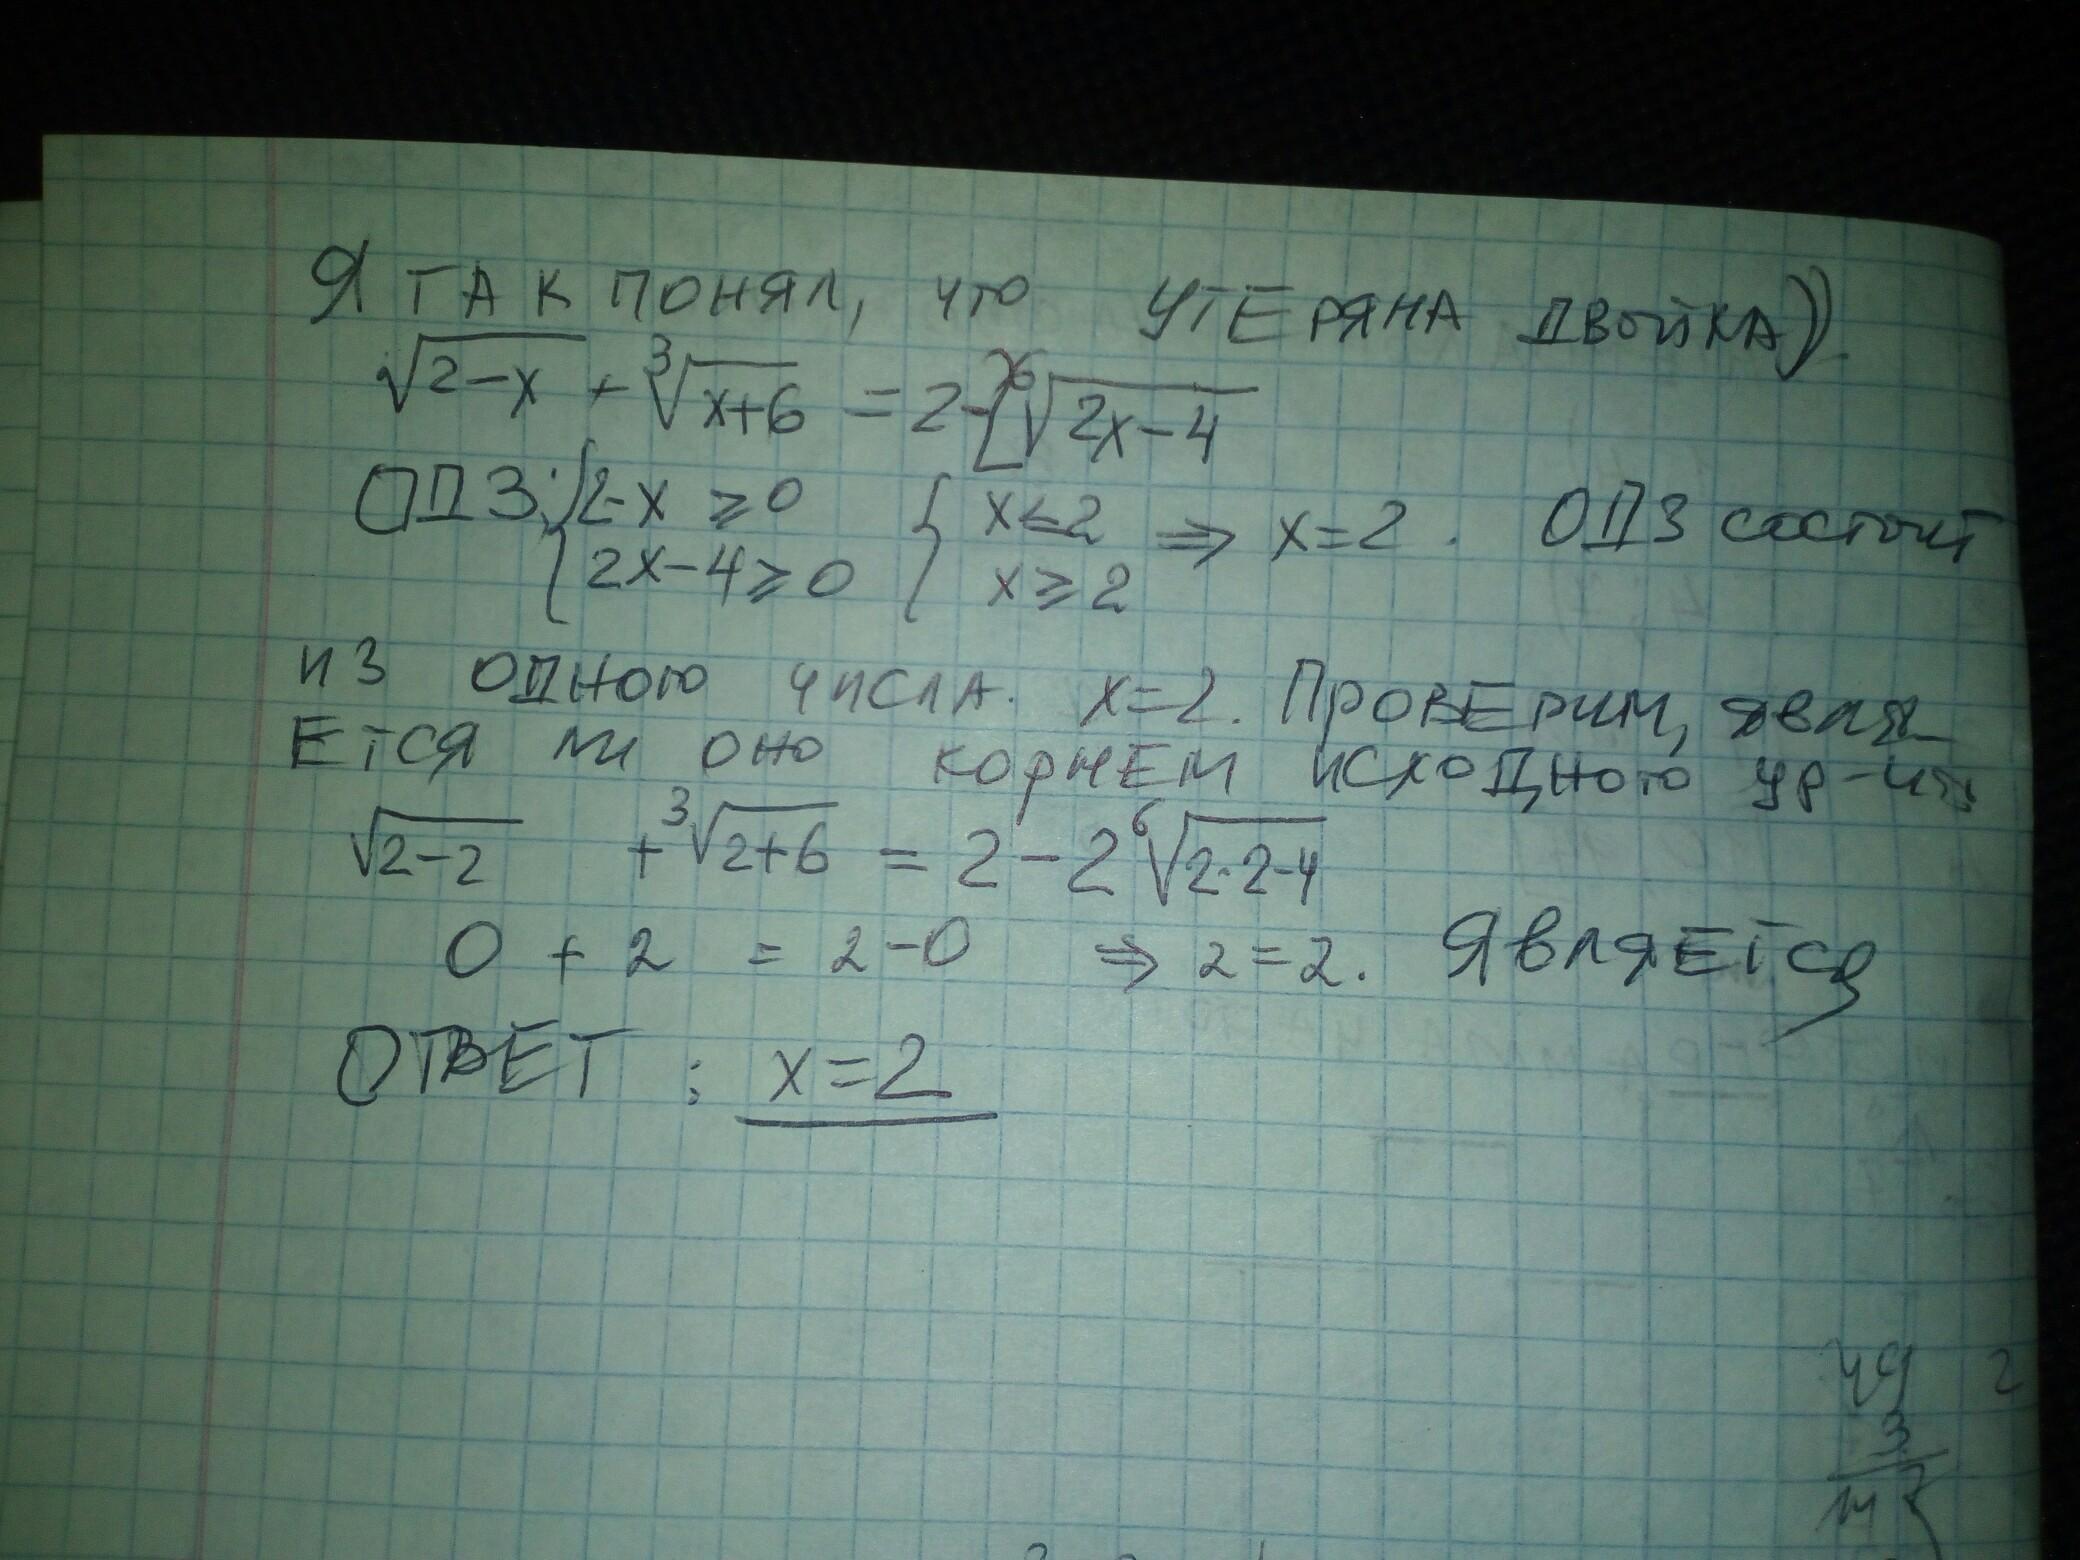 Я ТАК ПОНЯЛ, ЧТО УТЕРЯНА ДВОЙКА)).
√(2-x) + ³√(x+6) = 2-2⁶√(2x-4)
ОДЗ: { 2-x ≥ 0 { x≤2 ⇒ x=2. ОДЗ состоит
2x-4≥0 x≥2
ИЗ ОДНОГО ЧИСЛА. x=2. ПРОВЕРИМ, ЯВЛЯ-
ЕТСЯ ЛИ ОНО КОРНЕМ ИСХОДНОГО УР-ИЯ
√(2-2) + ³√(2+6) = 2-2⁶√(2·2-4)
0 + 2 = 2-0 ⇒ 2=2. ЯВЛЯЕТСЯ
ОТВЕТ: x=2
49 2
3
147